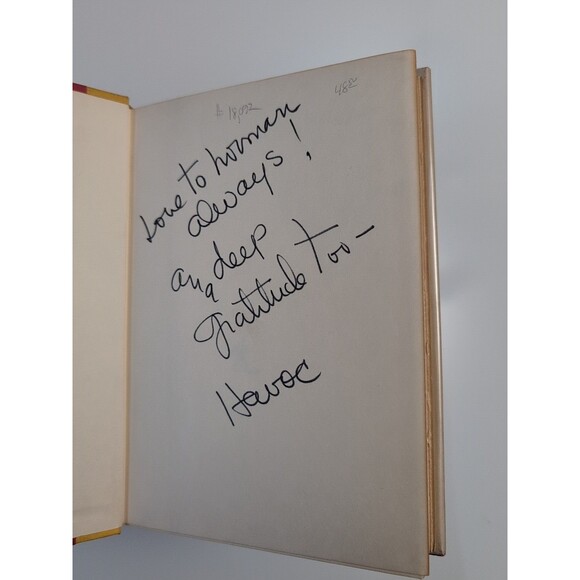 18,092
48
Love to norman
always!
and deep
gratitude too—
Havoc